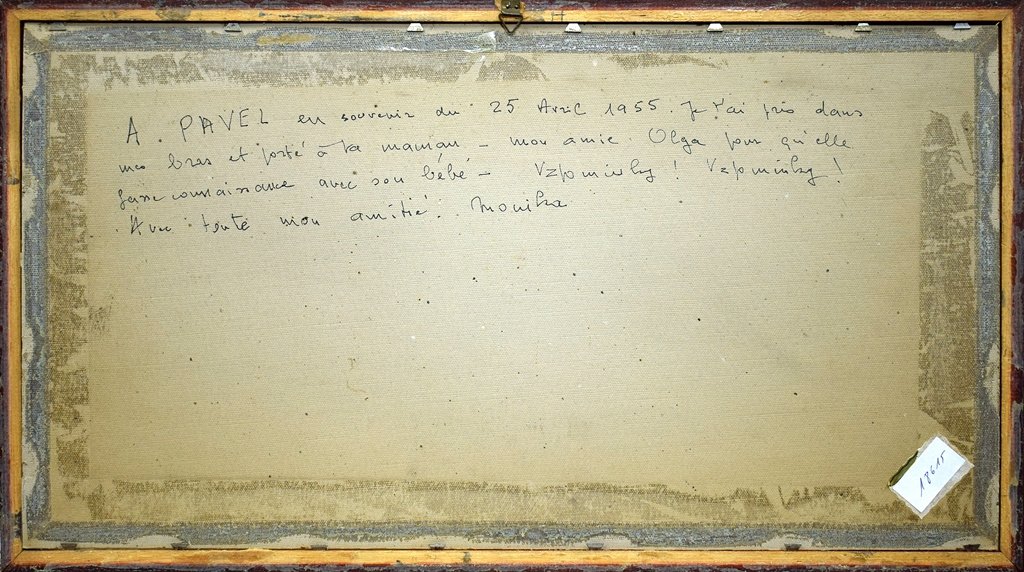 A. PAVEL en souvenir du 25 Avril 1955. Je t'ai pris dans
mes bras et porté à ta maman - mon amie Olga pour qu'elle
fasse connaissance avec son bébé - Vzpomínky! Vzpomínky!
Avec toute mon amitié. Monika
18615